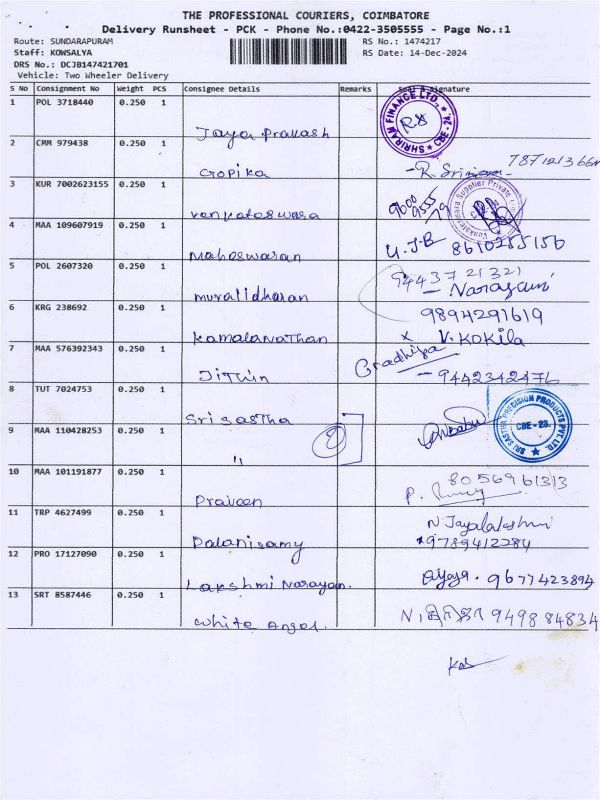 THE PROFESSIONAL COURIERS, COIMBATORE
Delivery Runsheet - PCK - Phone No.:0422-3505555 - Page No.:1
Route: SUNDARAPURAM RS No.: 1474217
Staff: KOWSALYA RS Date: 14-Dec-2024
DRS No.: DCJB147421701
Vehicle: Two Wheeler Delivery
S No Consignment No Weight PCS Consignee Details Remarks Signature
1 POL 3718440 0.250 1 Jaya Prakash SHRIRAM FINANCE LTD., CBE - 24.
2 CMM 979438 0.250 1 Gopika
3 KUR 7002623155 0.250 1 Venkateswara 9600 9555 79
4 MAA 109607919 0.250 1 Maheswaran U.J.B 8610255156
5 POL 2607320 0.250 1 Muralidharan 94437 21321
6 KRG 238692 0.250 1 Kamalanathan 9894291619 V. KOKILA
7 MAA 576392343 0.250 1 Jithin 9442342476
8 TUT 7024753 0.250 1 Sri Sastha SRI SASTHA PRECISION PRODUCTS PVT. LTD. CBE - 23.
9 MAA 110428253 0.250 1 " 2
10 MAA 101191877 0.250 1 Praveen 8056961313
11 TRP 4627499 0.250 1 Palanisamy N. Jayalakshmi 9789412284
12 PRO 17127090 0.250 1 Lakshmi Narayan. 9677423894
13 SRT 8587446 0.250 1 White Angel. 949884834